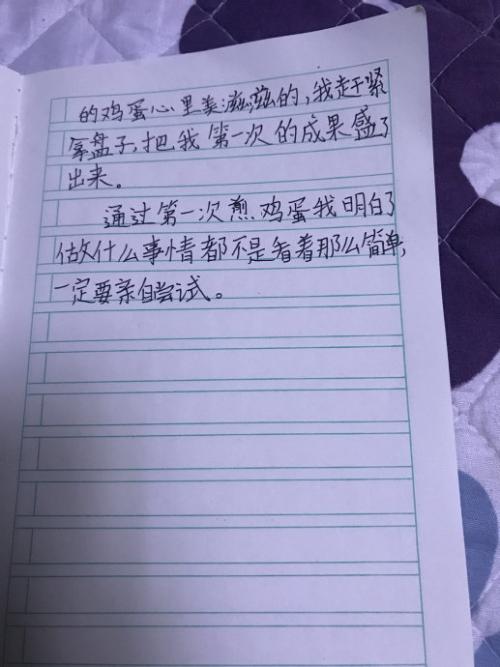 的鸡蛋心里美滋滋的,我赶紧
拿盘子,把我第一次的成果盛了
出来。
通过第一次煎鸡蛋我明白了
做什么事情都不是看着那么简单,
一定要亲自尝试。